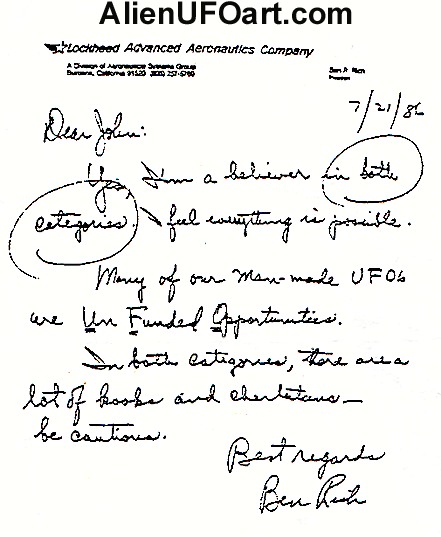 AlienUFOart.com
Lockheed Advanced Aeronautics Company
A Division of Aeronautical Systems Group
Burbank, California 91520
Ben R. Rich
President
7/21/86
Dear John:
Yes, I'm a believer in both
categories. I feel everything is possible.
Many of our man-made UFO's
are Un Funded Opportunities.
In both categories, there are a
lot of kooks and charletans—
be cautious.
Best regards
Ben Rich